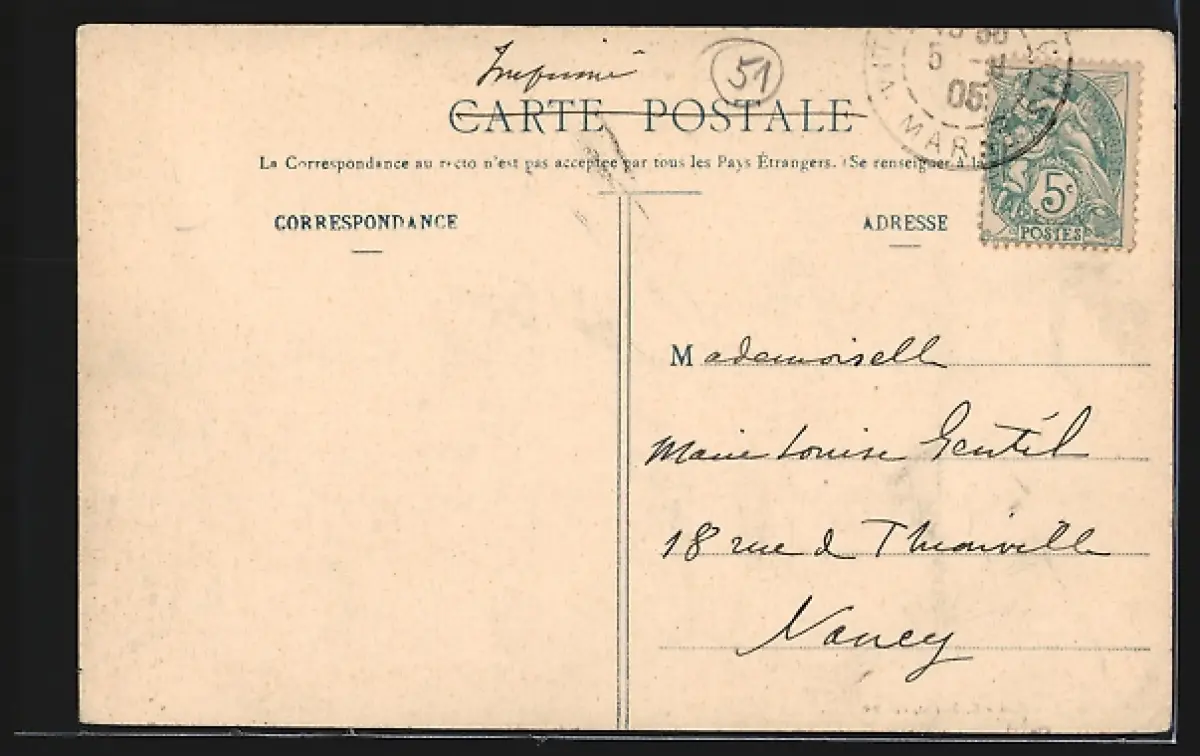 Imprimé
51
CARTE POSTALE
La Correspondance au recto n'est pas acceptée par tous les Pays Étrangers. (Se renseigner à la
CORRESPONDANCE
ADRESSE
5
05
MARNE
5c
POSTES
Mademoiselle
Marie Louise Gentil
18 rue de Thionville
Nancy